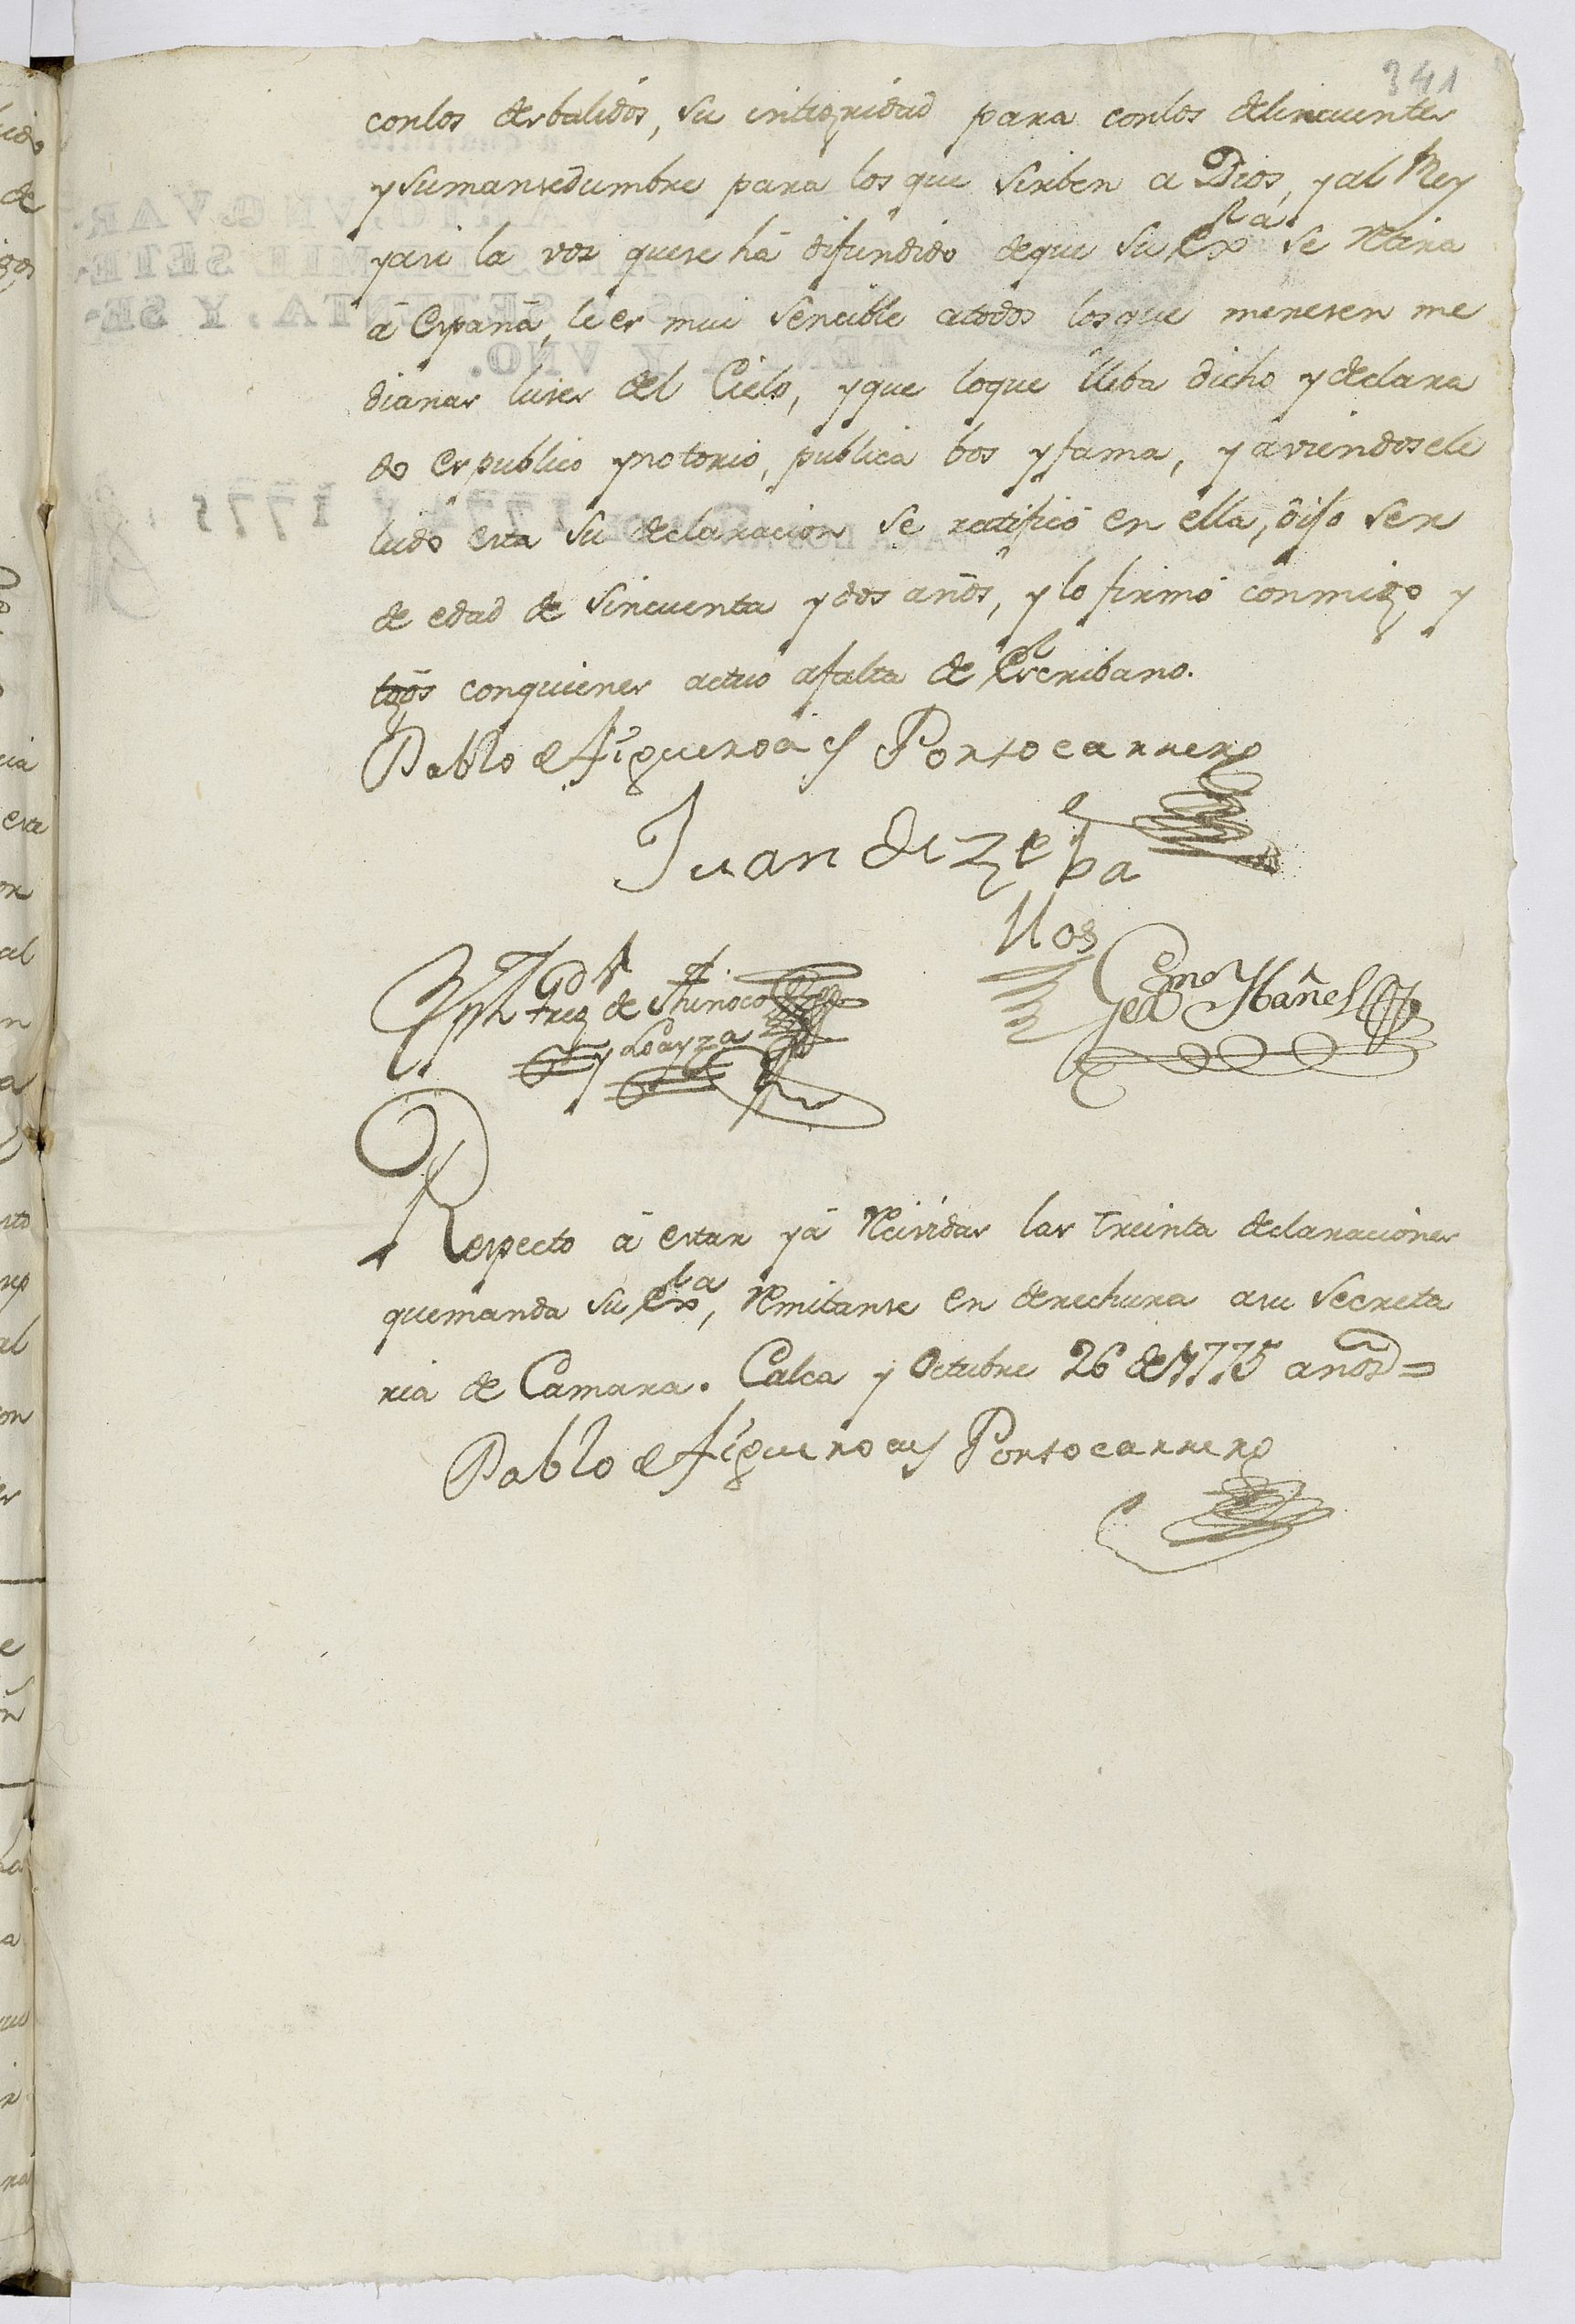 341
conlos desbalidos, su integridad para conlos delincuentes
ysumansedumbre para los que serben a Dios, yal Rey
yasi la vos quese há difundido deque su Exª se retira
â España, le es mui sencible atodos losque meresen me
dianas luses del Cielo, yque loque lleba dicho ydeclara
do es publico ynotorio, publica bos yfama, yaviendosele
leido esta su declaracion se ratificó en ella, dijo ser
de edad de sincuenta ydos años, ylo firmó conmigo y
tgõs conquienes actuo afalta de Escribano.
Pablo de Figueroa y Portocarrero
Juan de Zeba
llos
de Thinoco
y Loayza
Germo Ybañes
Respecto â estar yâ recividas las treinta declaraciones
quemanda su Exª, remitanse en derechura asu secreta
ria de Camara. Calca y Octubre 26 de 1775 años =
Pablo de Figueroa y Portocarrero